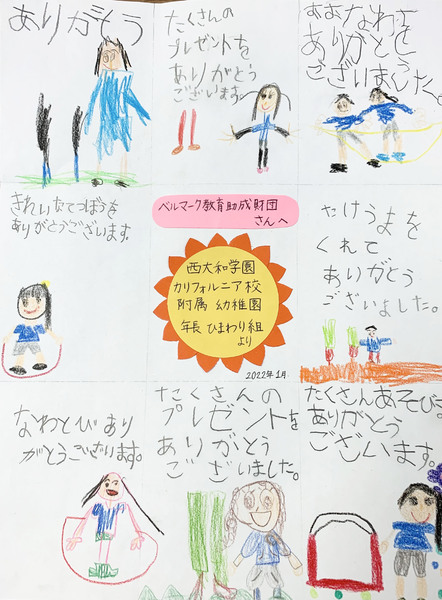 ありがとう
たくさんの
プレゼントを
ありがとう
ございます。
おおなわを
ありがとう
ございました。
きれいなてつぼうを
ありがとうございます。
ベルマーク教育助成財団
さんへ
西大和学園
カリフォルニア校
附属 幼稚園
年長 ひまわり組
より
2022年1月
たけうまを
くれて
ありがとう
ございました。
なわとびあり
がとうございます。
たくさんの
プレゼントを
ありがとう
ございました。
たくさんあそびます。
ありがとう
ございます。